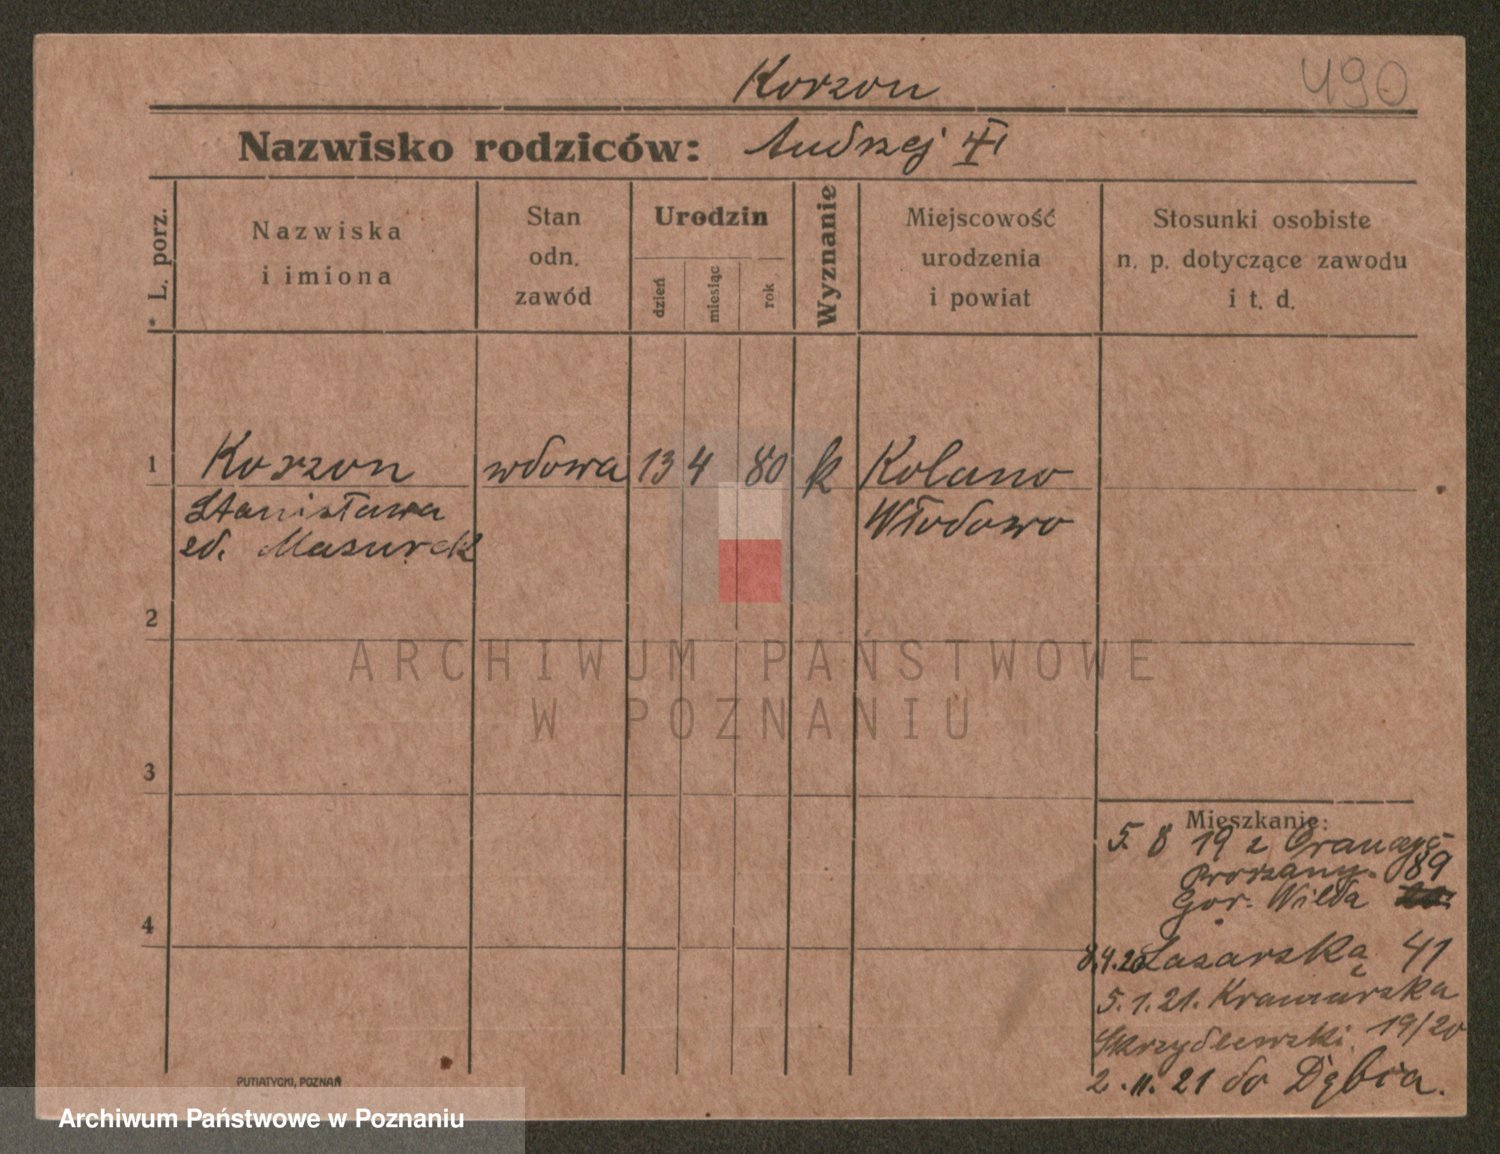 490
Korzon
Nazwisko rodziców: Andrzej
* L. porz.
Nazwiska
i imiona
Stan
odn.
zawód
Urodzin
dzień
miesiąc
rok
Wyznanie
Miejscowość
urodzenia
i powiat
Stosunki osobiste
n. p. dotyczące zawodu
i t. d.
1 Korzon wdowa 13 4 80 k Kolano
Stanisława Włodowo
Masurek
2
ARCHIWUM PAŃSTWOWE
W POZNANIU
3
Mieszkanie:
5. 8 19 z
89
Gór. Wilda
4
8.4.20 Łazarska 41
5.1.21. Kramarska
Skrzydlewski. 19/20
2.11.21 do Dąbia.
PUTIATYCKI, POZNAŃ
Archiwum Państwowe w Poznaniu